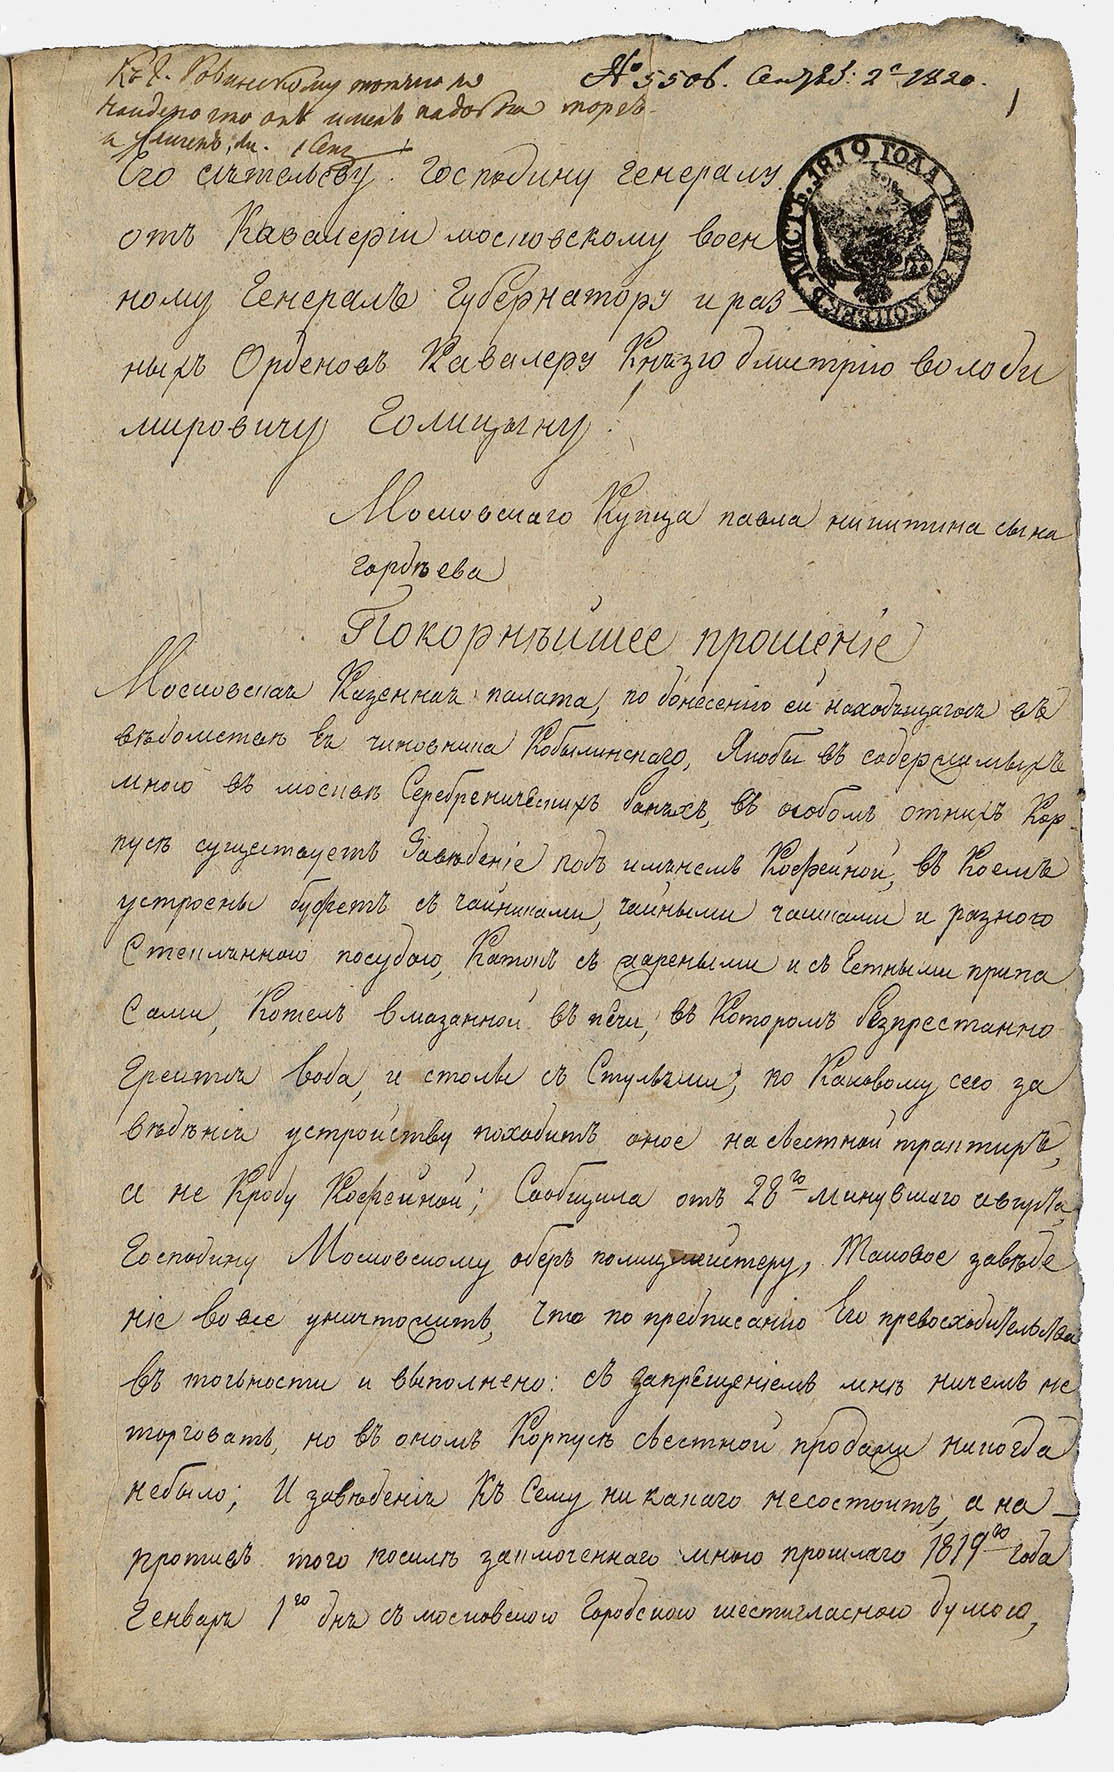 № 5506. Сентяб: 2го 1820.
1
ЛИСТЪ. 1819 ГОДА
Его сіятельству. Господину генералу
отъ Кавалеріи московскому воен
ному Генералъ Губернатору и раз-
ныхъ Орденовъ Кавалеру Князю дмитрію володи
мировичу Голицыну!
Московскаго Купца павла никитина сына
гордѣева
Покорнѣишее прошеніе
Московская Казенная палата, по донесенію ей находящагося въ
вѣдомствѣ ея чиновника Кобылинскаго, Якобы въ содержимыхъ
мною въ москвѣ Серебреническихъ баняхъ, въ особомъ отнихъ Кор-
пусѣ существуетъ Заведеніе подъ имянемъ Кофейной, въ Коемъ
устроены буфетъ съ чайниками, чайными чашками и разною
Стеклянною посудою, Катокъ съ жареными и съ Естными припа
Сами, Котелъ вмазанной въ печи, въ Которомъ безпрестанно
Греится вода, и столы съ Стульями; по Каковому сего за
веденія устройству походитъ оное на съестной трактиръ,
а не Кроду Кофейной; Сообщила отъ 28го минувшаго августа,
Господину Московскому оберъ полицмейстеру, Таковое заведе
ніе вовсе уничтожить, Что по предписанію Его превосходительства
въ точности и выполнено: съ запрещеніемъ мнѣ ничемъ не
торговать, но въ ономъ Корпусѣ съестной продажи никогда
небыло; И заведенія Къ Сему никакаго несостоитъ, а на-
противъ того посилѣ заключеннаго мною прошлаго 1819го года
Генваря 1го дня съ московскою Городскою шестигласною думою,